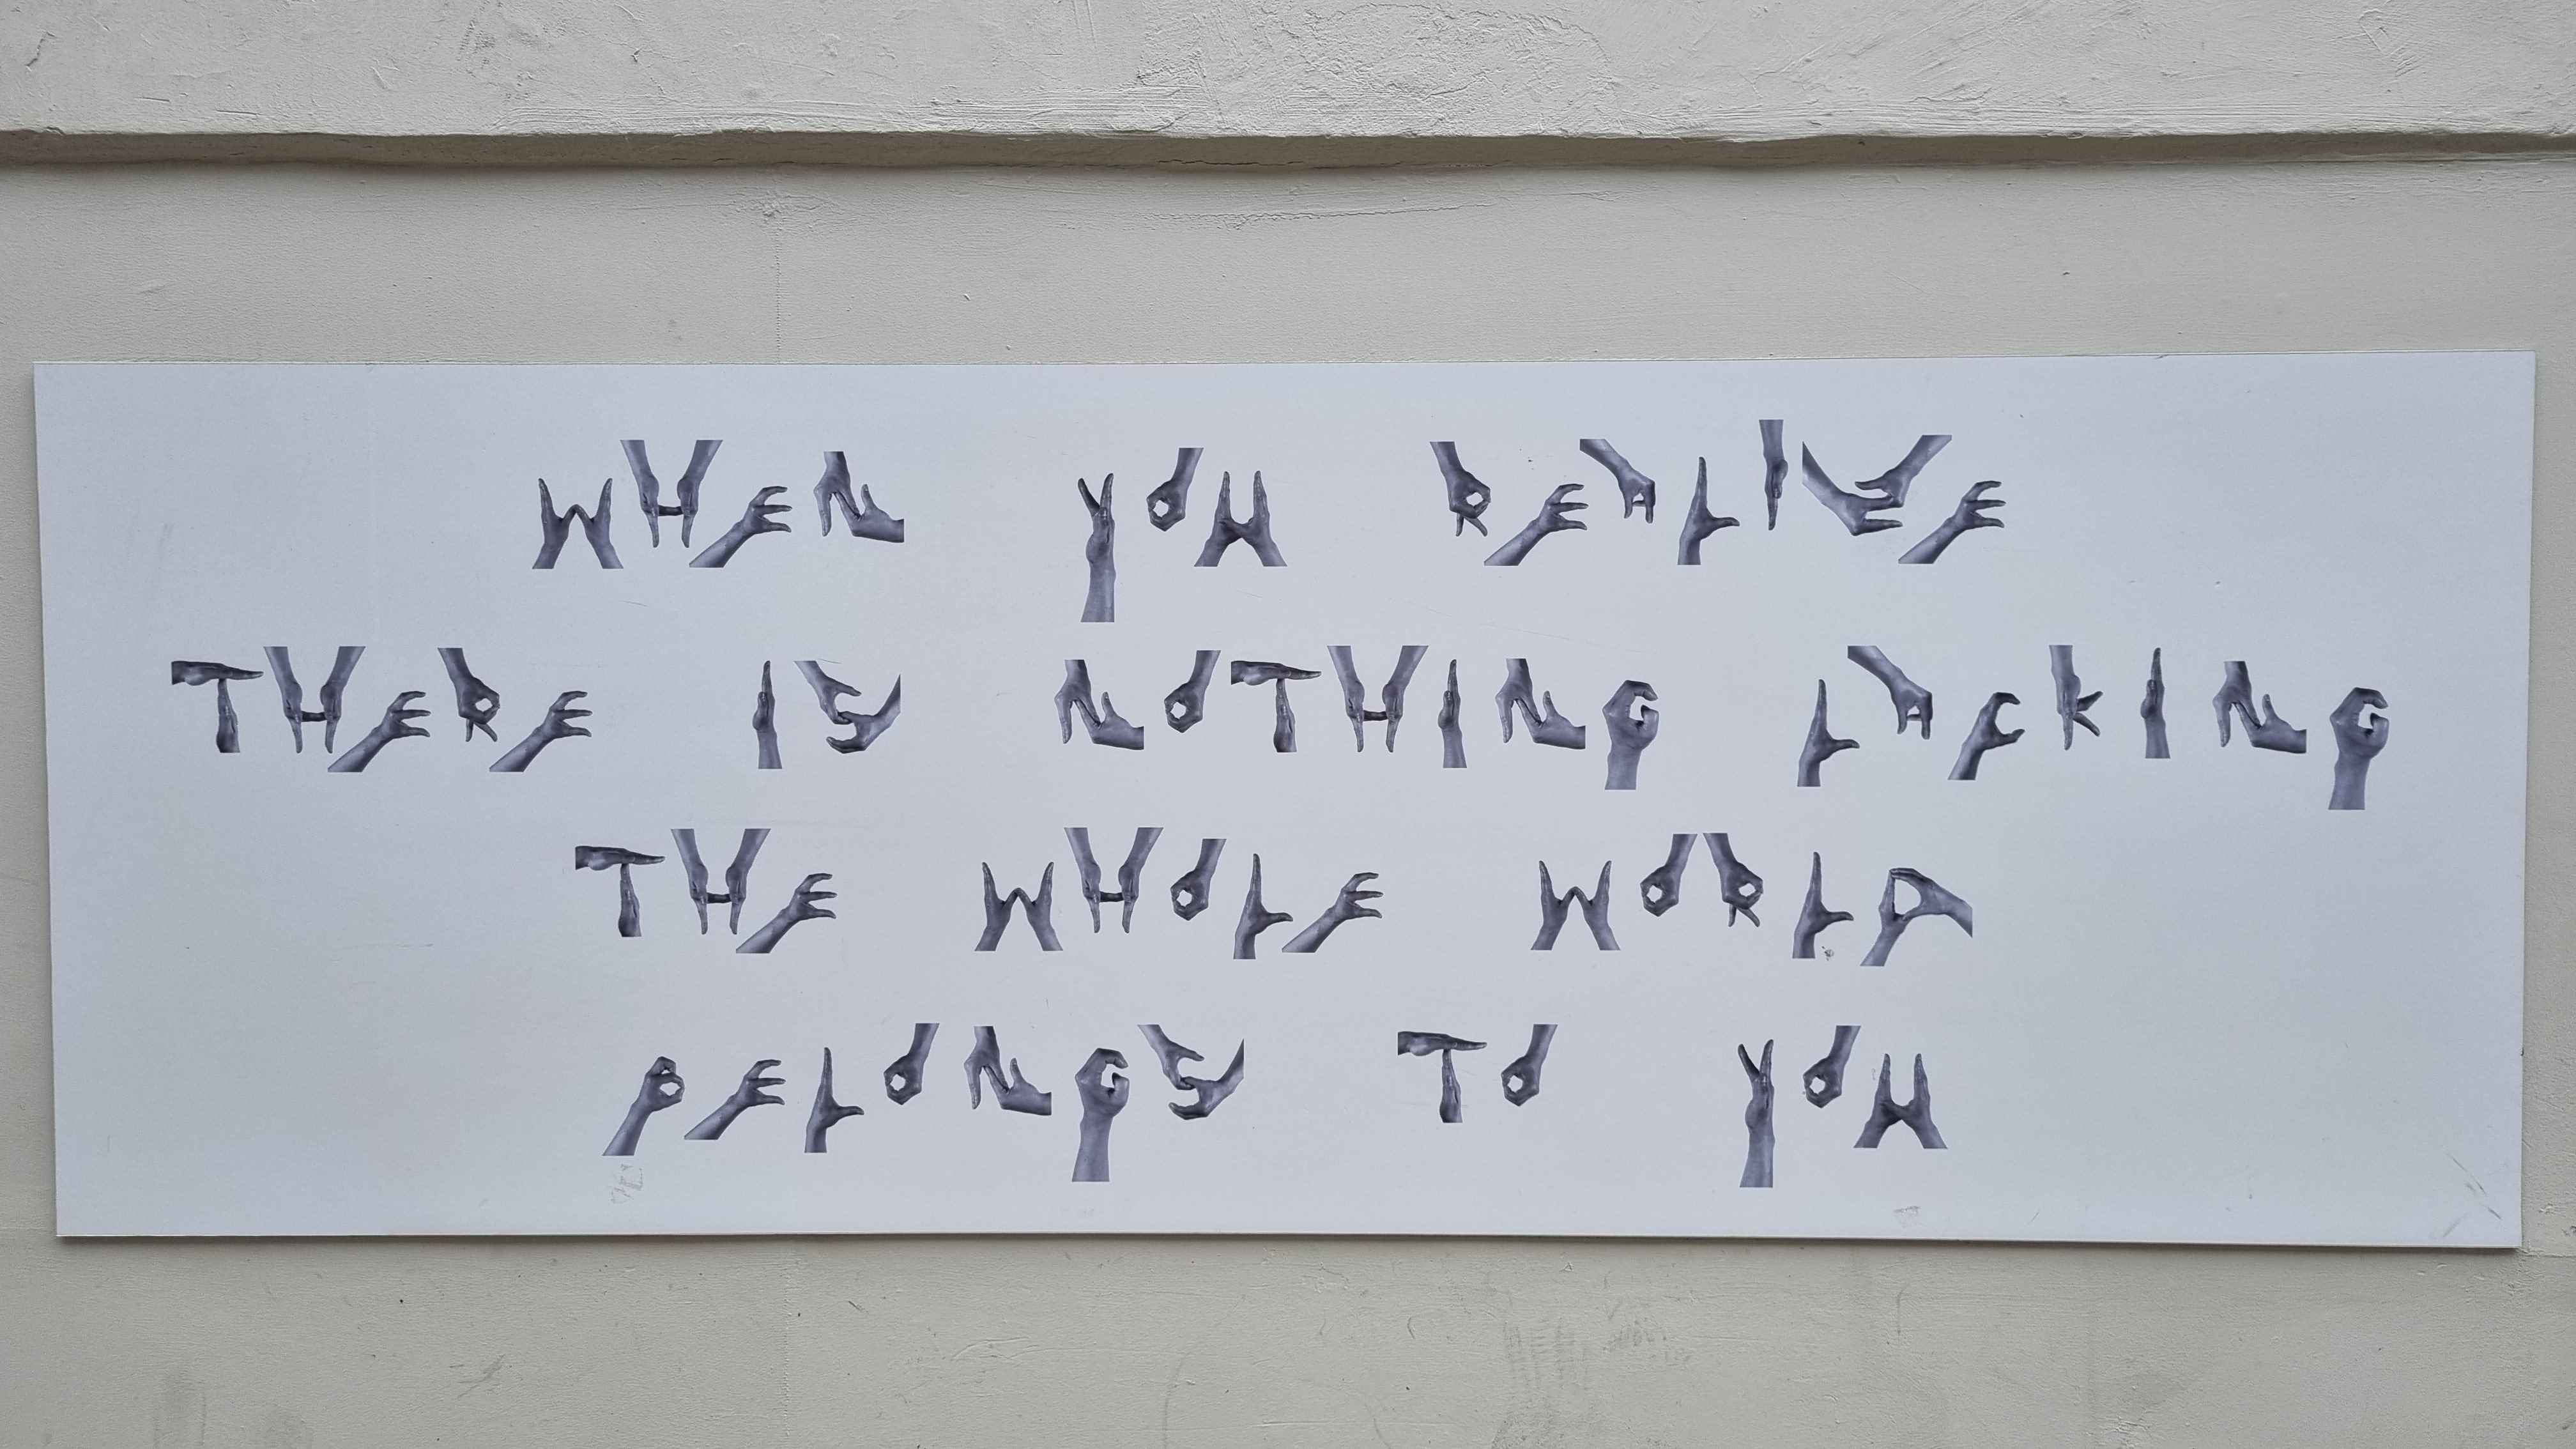 WHEN YOU REALIZE
THERE IS NOTHING LACKING
THE WHOLE WORLD
BELONGS TO YOU